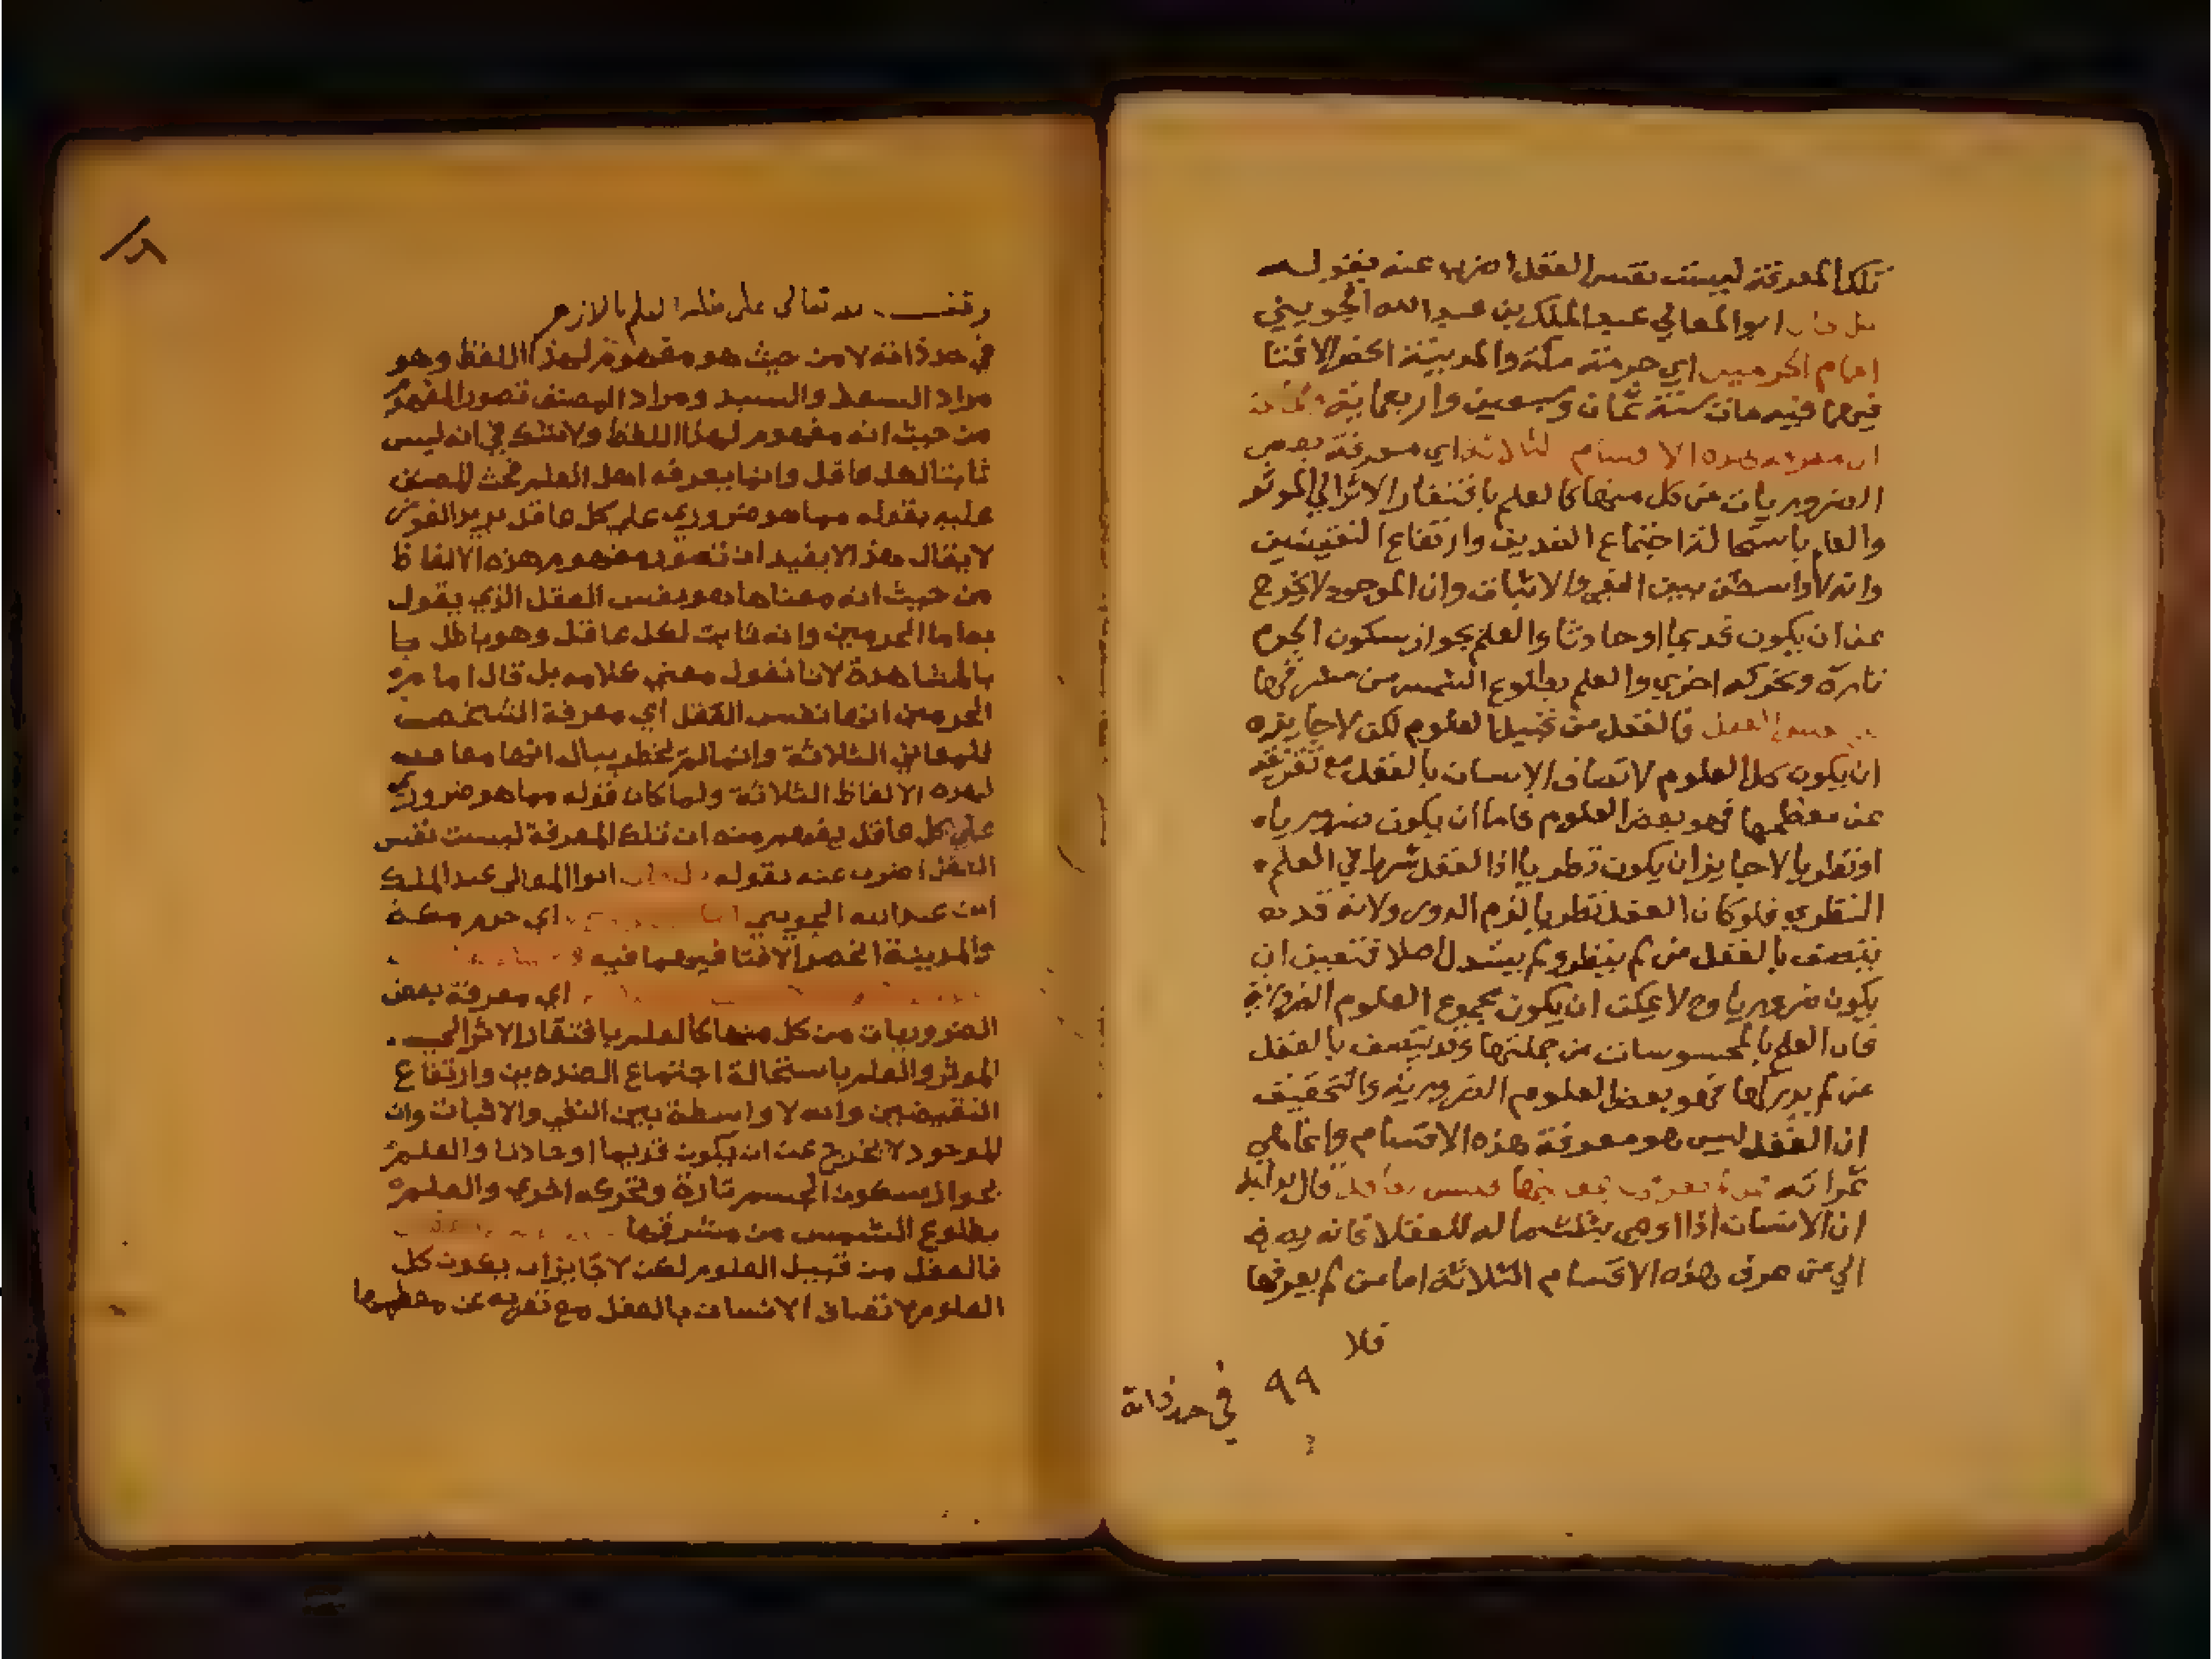 تلك المعرفة ليست نفس العقل اضرب عنه بقوله
بل قال ابو المعالي عبد الملك بن عبد الله الجويني
امام الحرمين اي حرمة مكة والمدينة انحصر الافتا
فيهما فيه مات سنة ثمان وسبعين واربعماية
ان معرفة هذه الاقسام الثلاثة اي معرفة بعض
الضروريات من كل منها كالعلم بافتقار الاثر الي الموثر
والعلم باستحالة اجتماع الضدين وارتفاع النقيضين
وانه لا واسطة بين النفي والاثبات وان الموجود لا يخرج
عن ان يكون قديما او حادثا والعلم بجواز سكون الجرم
تارة وتحركه اخري والعلم بطلوع الشمس من مشرقها
العقل فالعقل من قبيل العلوم لكن لا جايزه
ان يكون كل العلوم لاتصاف الانسان بالعقل مع
عن معظمها فهو بعض العلوم فاما ان يكون ضروريا
او نظريا لا جايز ان يكون نظريا اذ العقل شرط في العلم
النظري فلو كان العقل نظريا لزم الدور ولانه قد
يتصف بالعقل من لم ينظر ولم يستدل اصلا فتعين ان
يكون ضروريا وح لا يمكن ان يكون مجموع العلوم الضرورية
فان العلم بالمحسوسات من جملتها وقد يتصف بالعقل
من لم يدركها فهو بعض العلوم الضرورية والتحقيق
ان العقل ليس هو معرفة هذه الاقسام وانما هي
ثمراته فمن لم يعرفها فليس بعاقل قال
ان الانسان اذا اوصي بثلث ماله للعقلا فانه
الي من عرف هذه الاقسام الثلاثة اما من لم يعرفها
فلا
٩٩
في حد ذاته
وقف لله تعالى على طلبة العلم بالازهر
في حد ذاته لا من حيث هو مفهوم لهذا اللفظ وهو
مراد السعد والسيد ومراد المصنف تصور المفهوم
من حيث انه مفهوم لهذا اللفظ ولا شك في انه ليس
ثابتا لكل عاقل وانما يعرفه اهل العلم
عليه بقوله مما هو ضروري علي كل عاقل يريد
لا يقال هذا لا يفيد ان تصور مفهوم هذه الالفاظ
من حيث انه معناها هو نفس العقل الذي يقول
به امام الحرمين وانه ثابت لكل عاقل وهو باطل
بالمشاهدة لانا نقول معني كلامه بل قال امام
الحرمين انها نفس العقل اي معرفة الشخص
للمعاني الثلاثة وان لم تخطر ببال انها معا
لهذه الالفاظ الثلاثة ولما كان قوله مما هو ضروري
علي كل عاقل يفهم منه ان تلك المعرفة ليست نفس
العقل اضرب عنه بقوله بل قال ابو المعالي عبد الملك
ابن عبد الله الجويني اي حرم مكة
والمدينة انحصر الافتا فيهما فيه
اي معرفة بعض
الضروريات من كل منها كالعلم بافتقار الاثر الي
الموثر والعلم باستحالة اجتماع الضدين وارتفاع
النقيضين وانه لا واسطة بين النفي والاثبات وان
الموجود لا يخرج عن ان يكون قديما او حادثا والعلم
بجواز سكون الجسم تارة وتحركه اخري والعلم
بطلوع الشمس من مشرقها
فالعقل من قبيل العلوم لكن لا جايز ان يكون كل
العلوم لاتصاف الانسان بالعقل مع تعريه عن معظمها